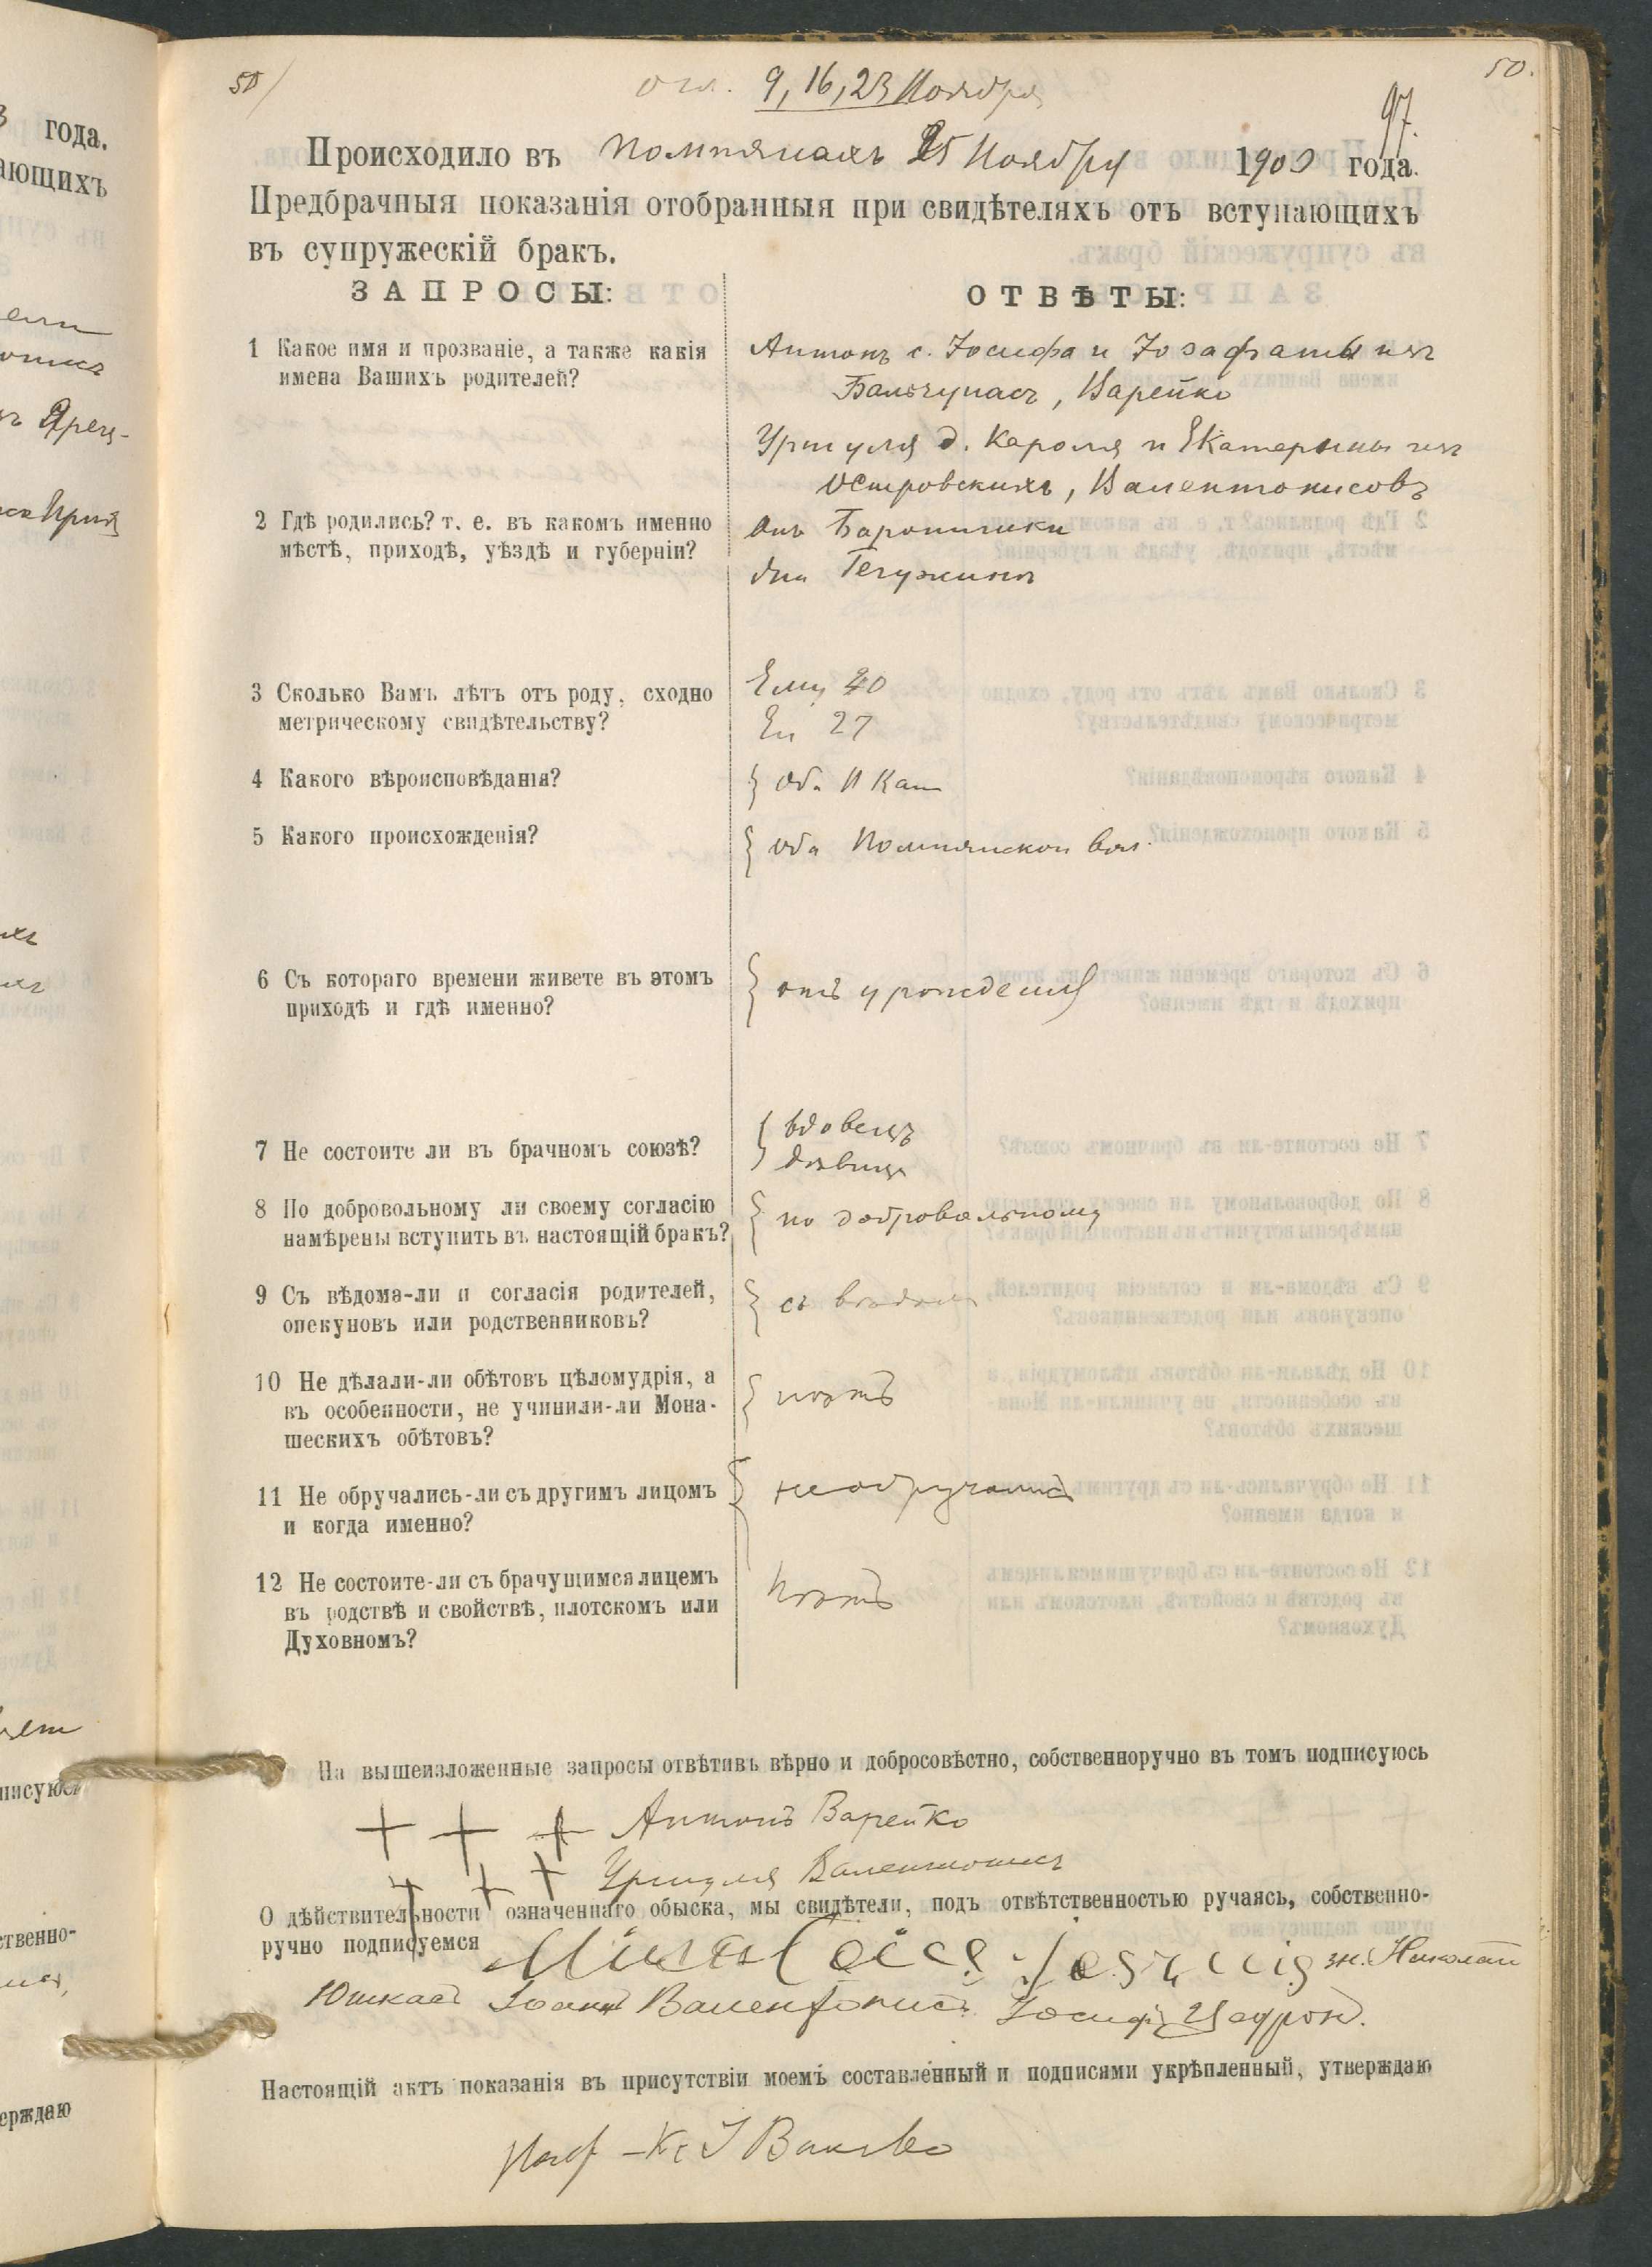 50/ огл. 9, 16, 23 Ноября 50.
97.
Происходило въ Помпянахъ 25 Ноября 1903 года.
Предбрачныя показанія отобранныя при свидѣтеляхъ отъ вступающихъ
въ супружескій бракъ.
ЗАПРОСЫ:
ОТВѢТЫ:
1 Какое имя и прозваніе, а также какія
имена Вашихъ родителей?
Антонъ с. Іосифа и Іозафаты изъ
Бальчунасъ, Варейко
Уршуля д. Кароля и Екатерины изъ
Островскихъ, Валентонисовъ
2 Гдѣ родились? т. е. въ какомъ именно
мѣстѣ, приходѣ, уѣздѣ и губерніи?
Онъ Баронишки
Она
3 Сколько Вамъ лѣтъ отъ роду, сходно
метрическому свидѣтельству?
Ему 40
Ей 27
4 Какого вѣроисповѣданія?
Оба Р Кат
5 Какого происхожденія?
Оба Помпянской вол.
6 Съ котораго времени живете въ этомъ
приходѣ и гдѣ именно?
отъ урожденія
7 Не состоите ли въ брачномъ союзѣ?
вдовецъ
дѣвица
8 По добровольному ли своему согласію
намѣрены вступить въ настоящій бракъ?
по добровольному
9 Съ вѣдома-ли и согласія родителей,
опекуновъ или родственниковъ?
съ вѣдома
10 Не дѣлали-ли обѣтовъ цѣломудрія, а
въ особенности, не учинили-ли Мона-
шескихъ обѣтовъ?
нѣтъ
11 Не обручались-ли съ другимъ лицомъ
и когда именно?
не обручались
12 Не состоите-ли съ брачущимся лицемъ
въ родствѣ и свойствѣ, плотскомъ или
Духовномъ?
Нѣтъ
На вышеизложенные запросы отвѣтивъ вѣрно и добросовѣстно, собственноручно въ томъ подписуюсь
+ + + Антонъ Варейко
+ + + Уршуля Валентонисъ
О дѣйствительности означеннаго обыска, мы свидѣтели, подъ отвѣтственностью ручаясь, собственно-
ручно подписуемся зн. Николай
Юшкасъ Іоаннъ Валентонисъ Іосифъ
Настоящій актъ показанія въ присутствіи моемъ составленный и подписями укрѣпленный, утверждаю